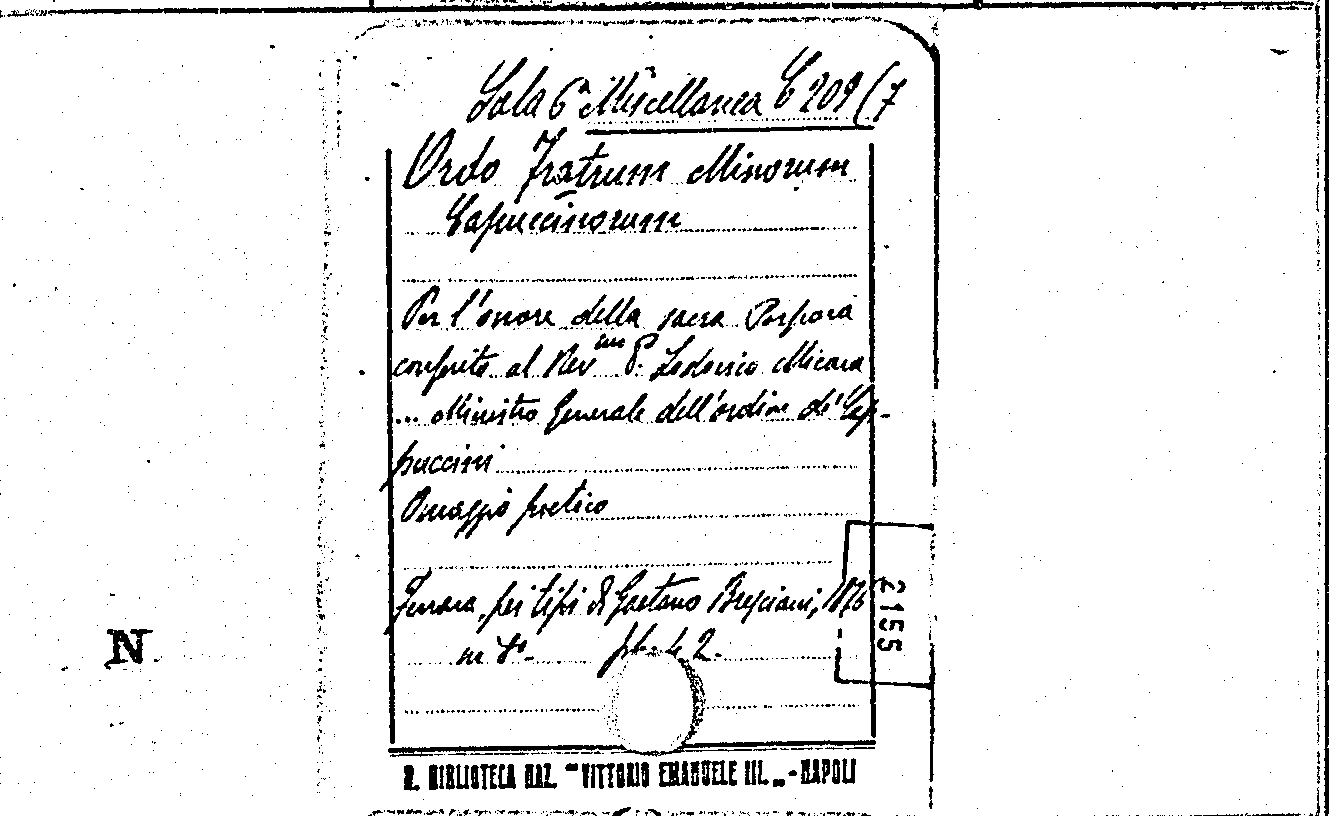 Sala 6ª Miscellanea C 209 (7
Ordo Fratrum Minorum
Cappuccinorum
Per l'onore della sacra Porpora
conferito al Rev.mo P. Lodovico Micara
... Ministro Generale dell'ordine de' Cap-
puccini
Omaggio poetico
Ferrara, pei tipi di Gaetano Bresciani, 1826
in 8º. pp. 42.
2155
N
R. BIBLIOTECA NAZ. "VITTORIO EMANUELE III." - NAPOLI